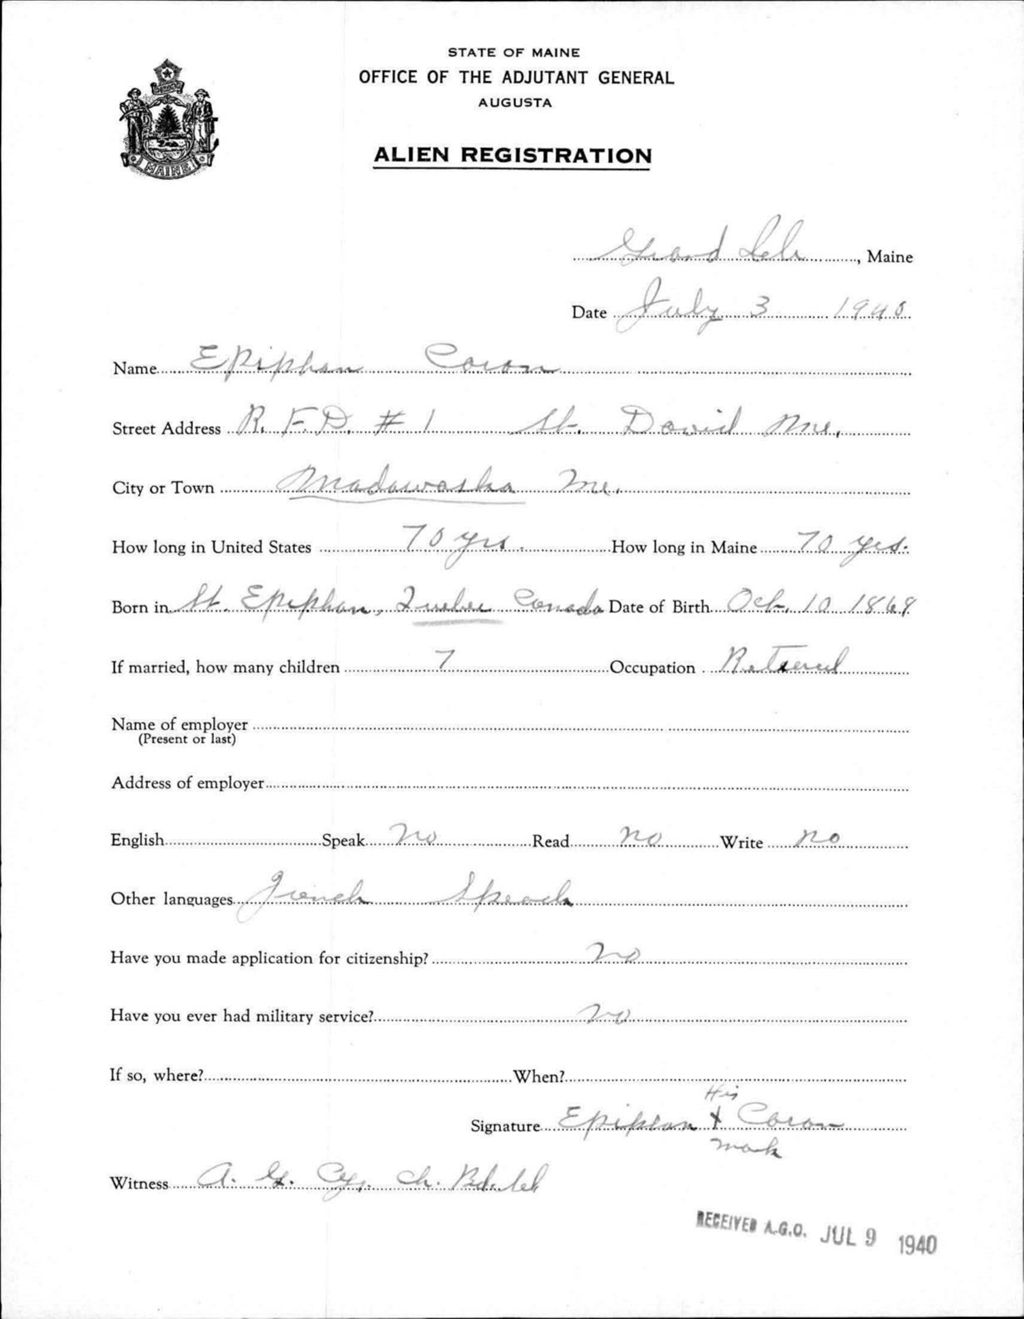 STATE OF MAINE
OFFICE OF THE ADJUTANT GENERAL
AUGUSTA
ALIEN REGISTRATION
MAINE
Grand Isle, Maine
Date July 3 1940
Name Epiphan Coron
Street Address R. F. D. # 1 St. David Me.
City or Town Madawaska Me.
How long in United States 70 yrs. How long in Maine 70 yrs.
Born in St. Epiphan, Quebec Canada Date of Birth Oct. 10 1869
If married, how many children 7 Occupation Retired
Name of employer
(Present or last)
Address of employer
English Speak No Read No Write no
Other languages French Speach
Have you made application for citizenship? No
Have you ever had military service? No
If so, where? When?
His
Signature Epiphan X Coron
mark
Witness A. G.
RECEIVED A.G.O. JUL 9 1940